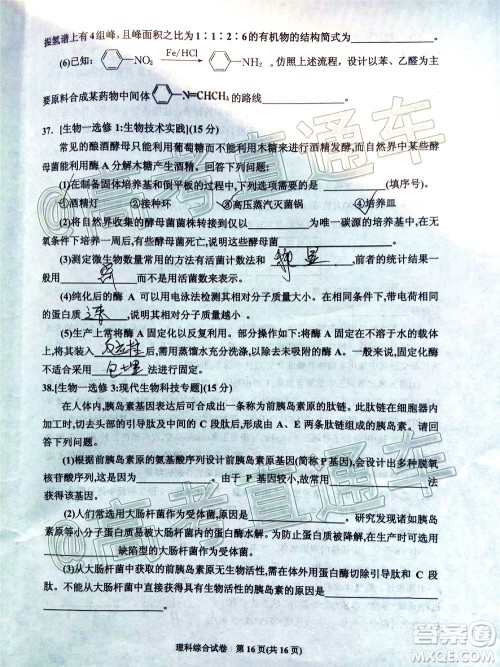 振氢谱上有4组峰，且峰面积之比为1∶1∶2∶6的有机物的结构简式为
(6)已知：
NO₂
Fe/HCl
NH₂。仿照上述流程，设计以苯、乙醛为主
要原料合成某药物中间体
N=CHCH₃的路线
37. [生物一选修1:生物技术实践](15分)
常见的酿酒酵母只能利用葡萄糖而不能利用木糖来进行酒精发酵，而自然界中某些酵
母菌能利用酶A分解木糖产生酒精。回答下列问题。
(1)在制备固体培养基和倒平板的过程中，下列选项需要的是
(填序号)。
①酒精灯 ②接种环 ③高压蒸汽灭菌锅 ④培养皿
(2)将自然界收集的酵母菌菌株转接到仅以
为唯一碳源的培养基中，在无
氧条件下培养一周后，有些酵母菌死亡，说明这些死亡的酵母菌
。
(3)测定微生物数量常用的方法有活菌计数法和
，前者的统计结果一
般用
而不是用活菌数来表示。
(4)纯化后的酶A可以用电泳法检测其相对分子质量大小。在相同条件下，带电荷相同
的蛋白质
，说明其相对分子质量越小。
(5)生产上常将酶A固定化以反复利用。部分操作如下：在无菌条件下，将不溶于水的载体
上，将其装入
，需用蒸馏水充分洗涤，以除去未
固定化酶
不采用
法进行固定。
38.[生物一选修3:现代生物科技专题](15分)
在人体内，胰岛素基因表达后可合成出一条称为前胰岛素原的肽链。此肽链在细胞器内
加工时，切去头部的引导肽及中间的C段肽后，形成由A、E两条肽链组成的胰岛素。请
回答下列问题。
(1)根据前胰岛素原的氨基酸序列设计前胰岛素原基因(简称P基因)，会设计出多种脱氧
核苷酸序列，这是因为
。由于P基因较小，故常用
法
获得该基因。
(2)人们常选用大肠杆菌作为受体菌，是因为
。研究发现诸如胰岛
素原等小分子蛋白质易被大肠杆菌内的蛋白酶水解。为防止蛋白质被降解，在实验中应选用
缺陷型的大肠杆菌作为受体菌。
(3)从大肠杆菌中获取的胰岛素原需要在体外用蛋白酶切除引导肽和C段
肽。不能从大肠杆菌中直接获得具有生物活性的胰岛素的原因是
。
理科综合试卷 第16页(共16页)
高考直通车
高考直通车